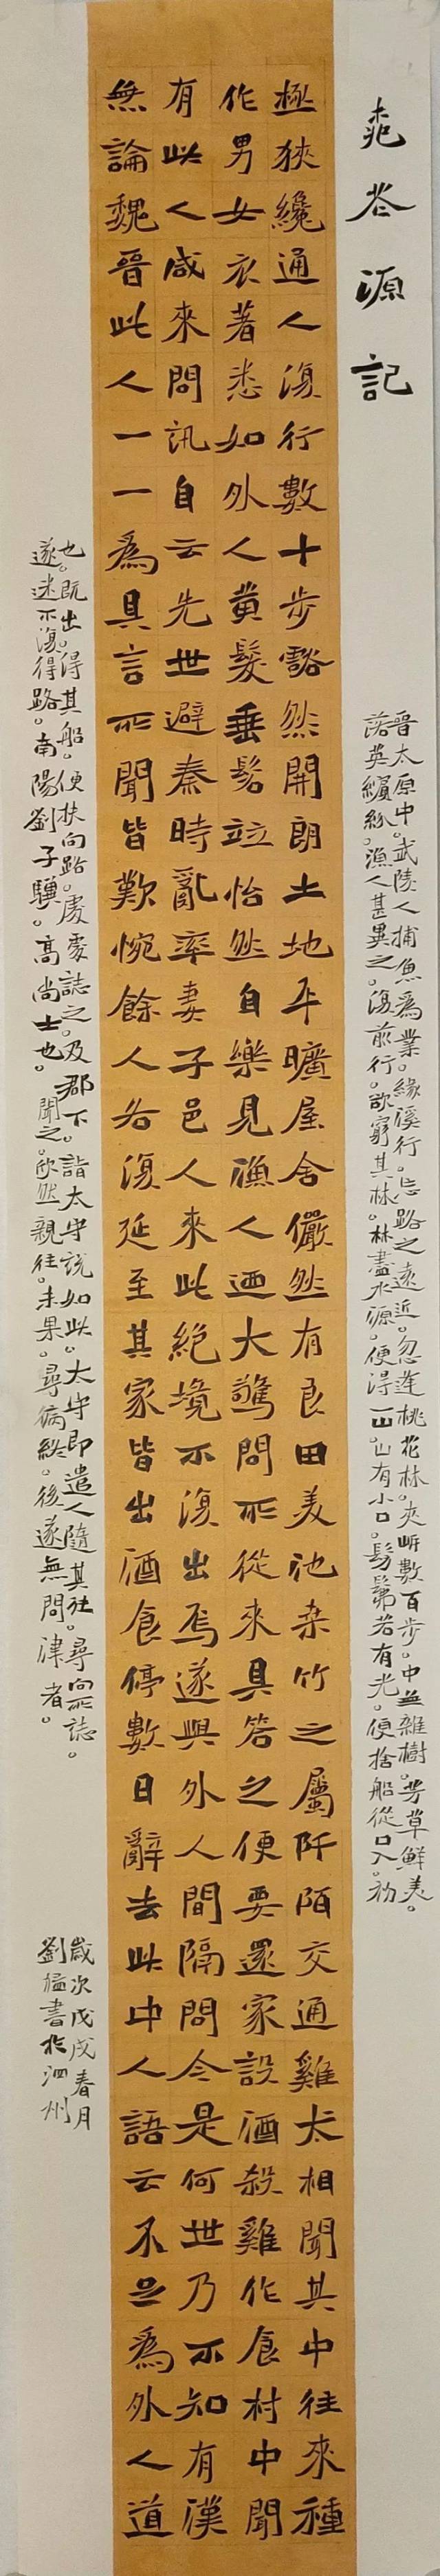 桃花源記
晉太原中。武陵人捕魚為業。緣溪行。忘路之遠近。忽逢桃花林。夾岸數百步。中無雜樹。芳草鮮美。
落英繽紛。漁人甚異之。復前行。欲窮其林。林盡水源。便得一山。山有小口。髣髴若有光。便捨船從口入。初
極狹纔通人復行數十步豁然開朗土地平曠屋舍儼然有良田美池桑竹之屬阡陌交通雞犬相聞其中往來種
作男女衣著悉如外人黃髮垂髫竝怡然自樂見漁人迺大驚問所從來具答之便要還家設酒殺雞作食村中聞
有此人咸來問訊自云先世避秦時亂率妻子邑人來此絕境不復出焉遂與外人間隔問今是何世乃不知有漢
無論魏晉此人一一為具言所聞皆歎惋餘人各復延至其家皆出酒食停數日辭去此中人語云不足為外人道
也。既出。得其船。便扶向路。處處誌之。及郡下。詣太守說如此。太守即遣人隨其往。尋向所誌。
遂迷不復得路。南陽劉子驥。高尚士也。聞之。欣然親往。未果。尋病終。後遂無問津者。
歲次戊戌春月
劉猛書於泗州